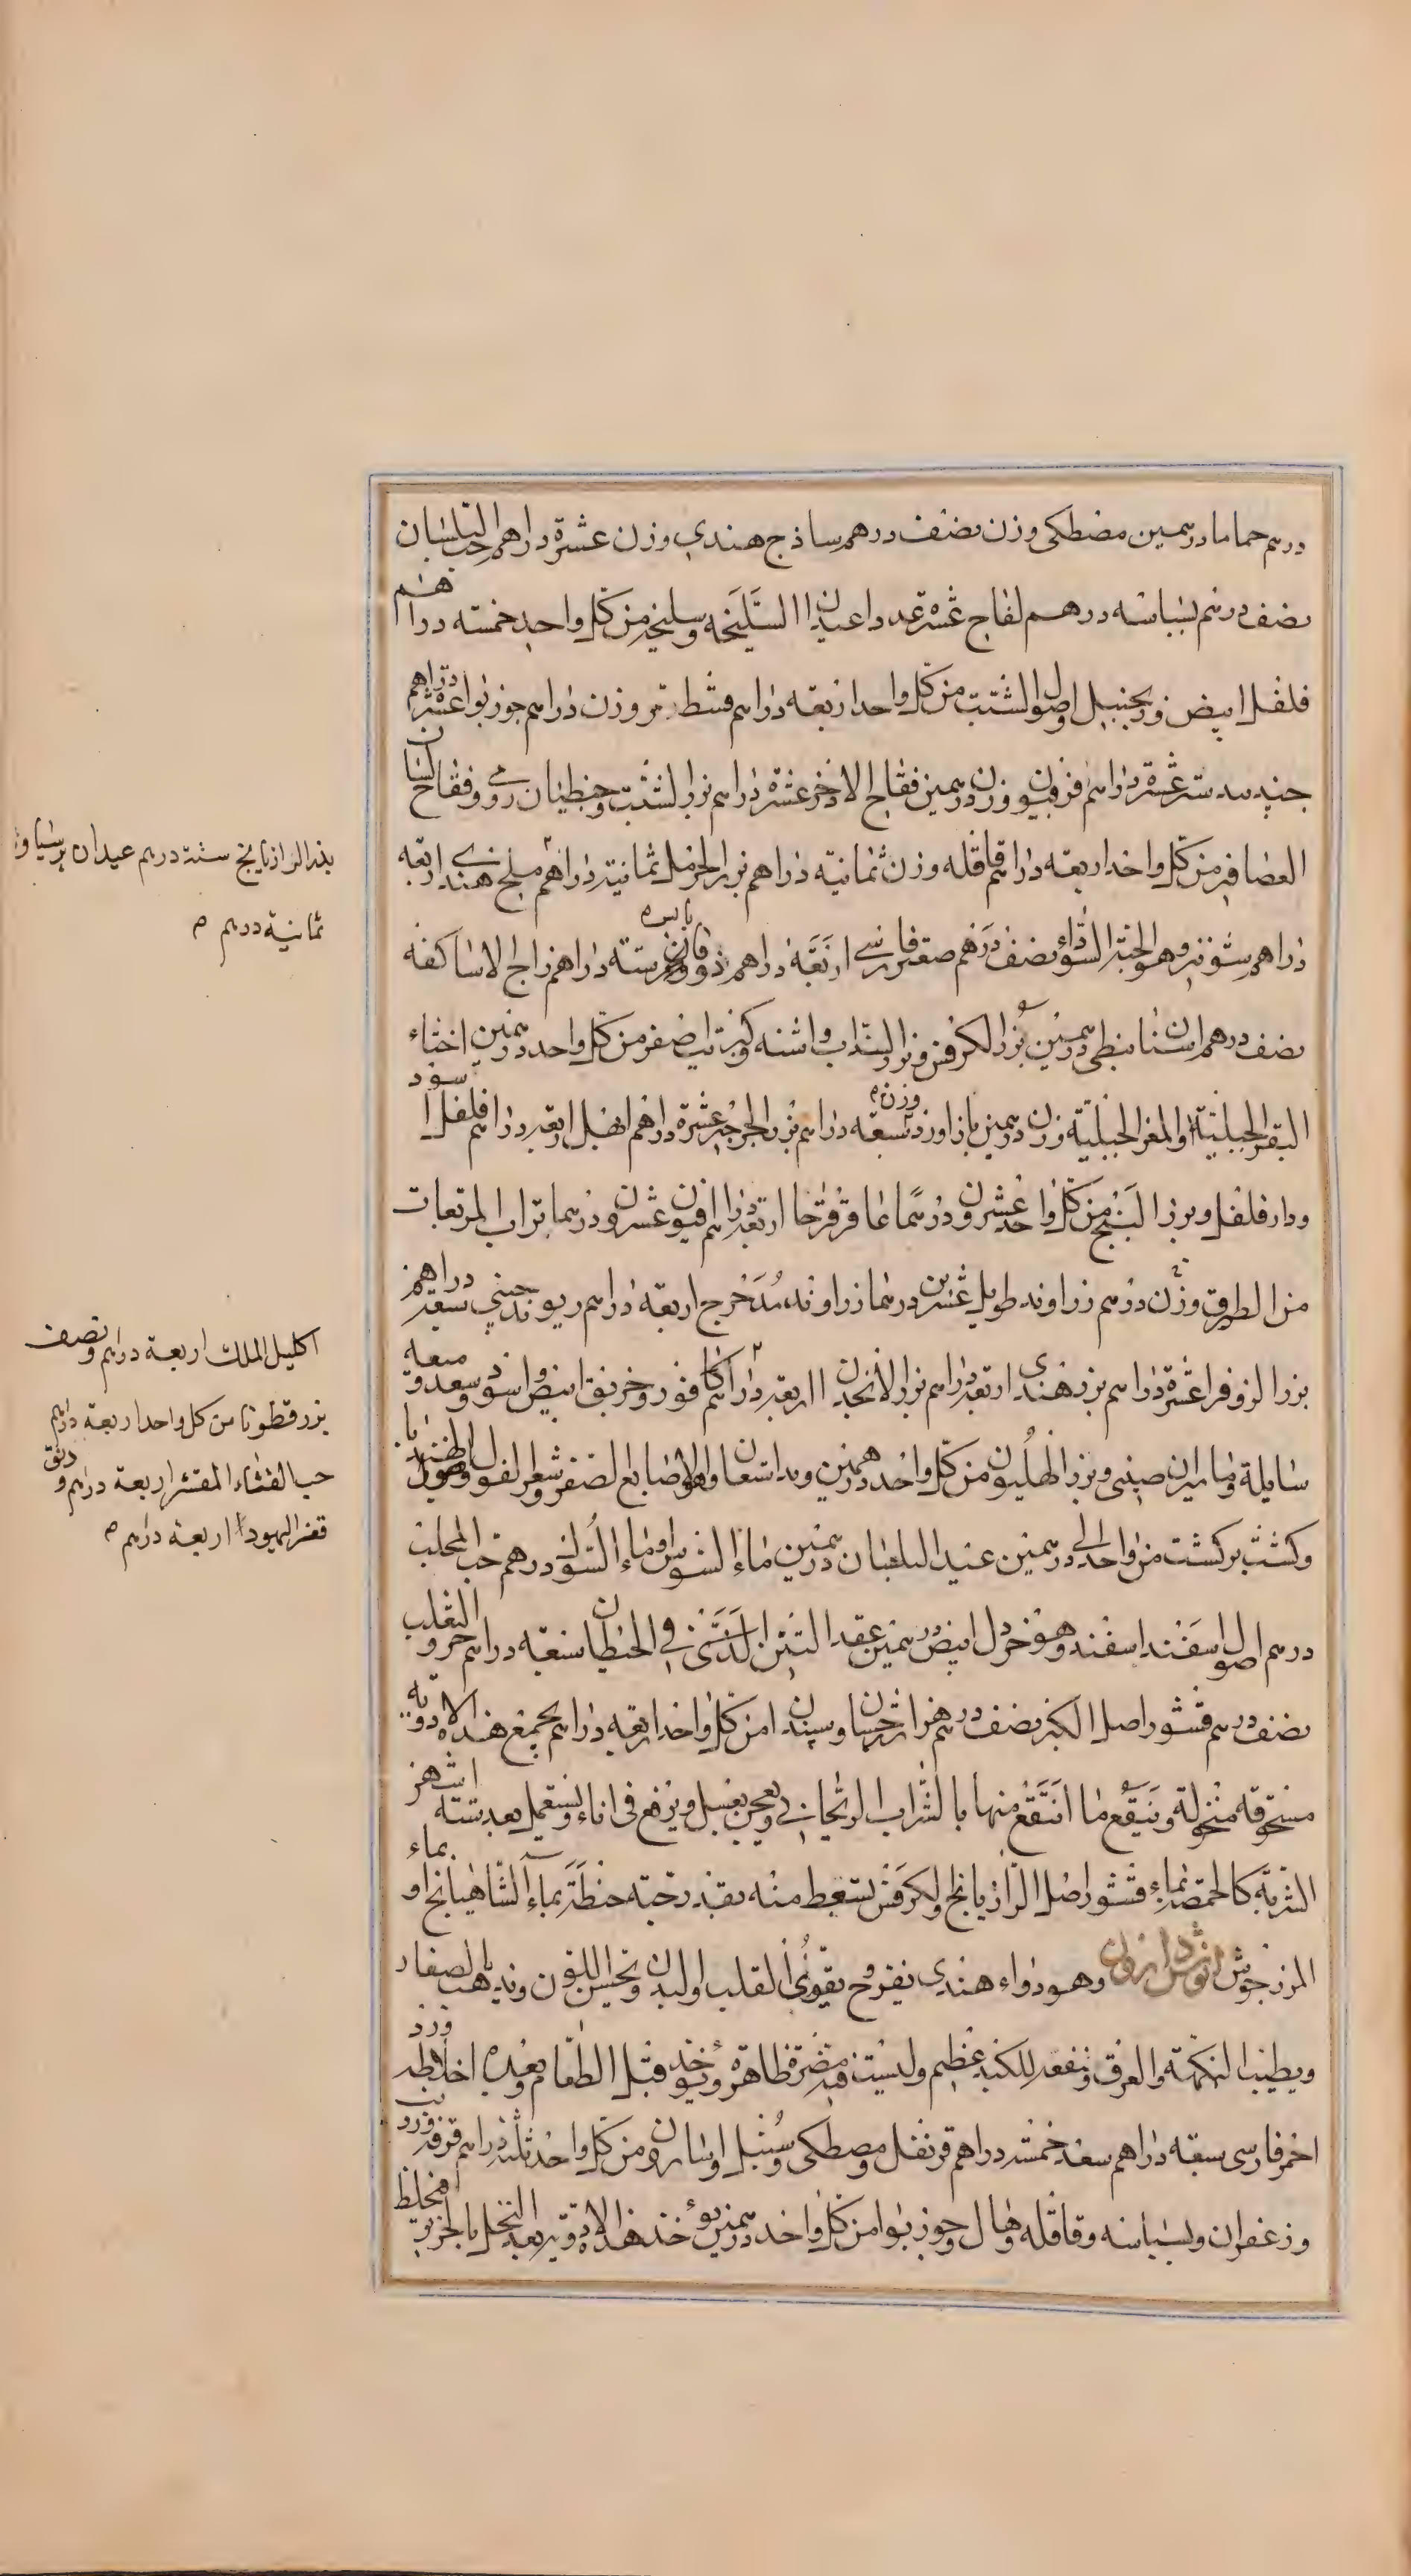 درهم حماما درهمين مصطكى وزن نصف درهم ساذج هندي وزن عشرة دراهم حب البلسان
نصف درهم بسباسه درهم لفاح عشره عددا عيدان السليخه وسليخه من كل واحد خمسته دراهم
فلفل ابيض وزنجبيل واصول الشبت من كل واحد اربعه دراهم قسط مر وزن دراهم جوز بوا عشرة دراهم
جند بيدستر عشرة دراهم فربيون وزن درهمين فقاح الاذخر عشرة دراهم بزر الشبت وجنطيان رومي وفقاح لسان
العصافير من كل واحد اربعه دراهم قاقله وزن ثمانيه دراهم بزر الحرمل ثمانية دراهم ملح هندي اربعه
دراهم شونيز وهو الحبة السوداء نصف درهم صعتر فارسي اربعة دراهم زوفا يابسه وزن ستة دراهم زاج الاساكفه
نصف درهم اشنان نبطي درهمين بزر الكرفس وبزر السذاب واشنه وكبريت اصفر من كل واحد درهمين اخثاء
البقر الجبلية او المعز الجبلية وزن درهمين بازاورد وزن تسعه دراهم بزر الجرجير عشرة دراهم ابهل اربعه دراهم فلفل اسود
ودار فلفل وبزر البنج من كل واحد عشرون درهما عاقرقرحا اربعة دراهم افيون عشرون درهما تراب المربعات
من الطرق وزن درهم زراوند طويل عشرين درهما زراوند مدحرج اربعة دراهم ريوند صيني سبعة دراهم
بزر الزوفرا عشرة دراهم بزر هندي اربعة دراهم بزر الانجدان اربعة دراهم كافور وخربق ابيض واسود وسعد وميعه
سايلة وماميران صيني وبزر الهليون من كل واحد درهمين وبداسقان والاصابع الصفر وشعر الفول وهو
وكشت بركشت من واحد الى درهمين عيدان البلسان درهمين ماء الشوس او ماء السوس درهم حب المحلب
درهم اصول اسفند اسفند وهو خردل ابيض درهمين عقد التبن الذي في الحيطان سبعة دراهم خرو الثعلب
نصف درهم قشور اصل الكبر نصف درهم هزارجشان وسپندان من كل واحد اربعه دراهم يجمع هذه الادويه
مسحوقه منخولة وينقع ما انتقع منها بالشراب الريحاني ويعجن بعسل ويرفع في اناء ويستعمل بعد ستة اشهر
الشربة كالحمصة بماء قشور اصل الرازيانج والكرفس يسعط منه بقدر حبة حنطة بماء الشاهبانج او بماء
المرزنجوش انوش دارو وهو دواء هندي يفرح ويقوي القلب والبدن ويحسن اللون ويذهب بالصفار
ويطيب النكهة والعرق وينفع للكبد عظيم وليست فيه مضرة ظاهرة ويؤخذ قبل الطعام وبعده اخلاطه ورد
احمر فارسي سبعه دراهم سعد خمسة دراهم قرنفل ومصطكى وسنبل واسارون من كل واحد ثلثة دراهم قرفه وزرنب
وزعفران وبسباسه وقاقله وهال وجوز بوا من كل واحد درهمين يؤخذ هذه الادوية بعد النخل بالحريره فيخلط
بذر الرازيانج ستة درهم عيدان برسياوشان
ثمانية درهم
اكليل الملك اربعة دراهم ونصف
بزر قطونا من كل واحد اربعة دراهم
حب القثاء المقشر اربعة دراهم ودنق
قفر اليهودا اربعة دراهم